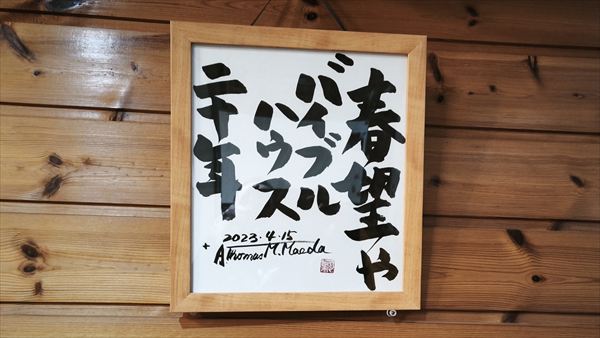 春望や
バイブル
ハウス
二十年
2023.4.15
+ A Thomas M. Maeda